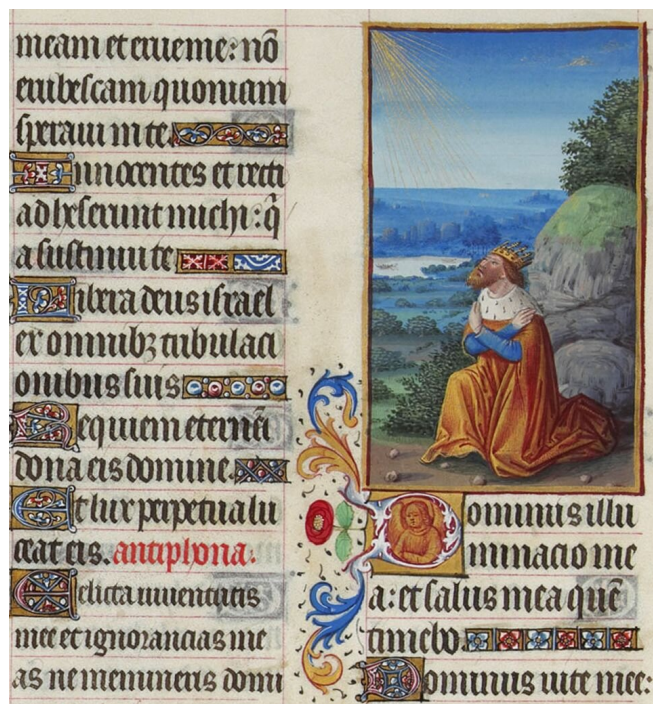 meam et erue me: nō
erubescam quoniam
speraui in te
Innocentes et recti
adheserunt michi: q̄
a sustinui te
Libera deus israel
ex omnibꝫ tribulaci
onibus suis
Requiem eternā
dona eis domine
Et lux perpetua lu
ceat eis. antiphona.
Delicta iuuentutis
mee et ignorancias me
as ne memineris domi
Dominus illu
minacio me
a: et salus mea quē
timebo
Dominus uite mee: